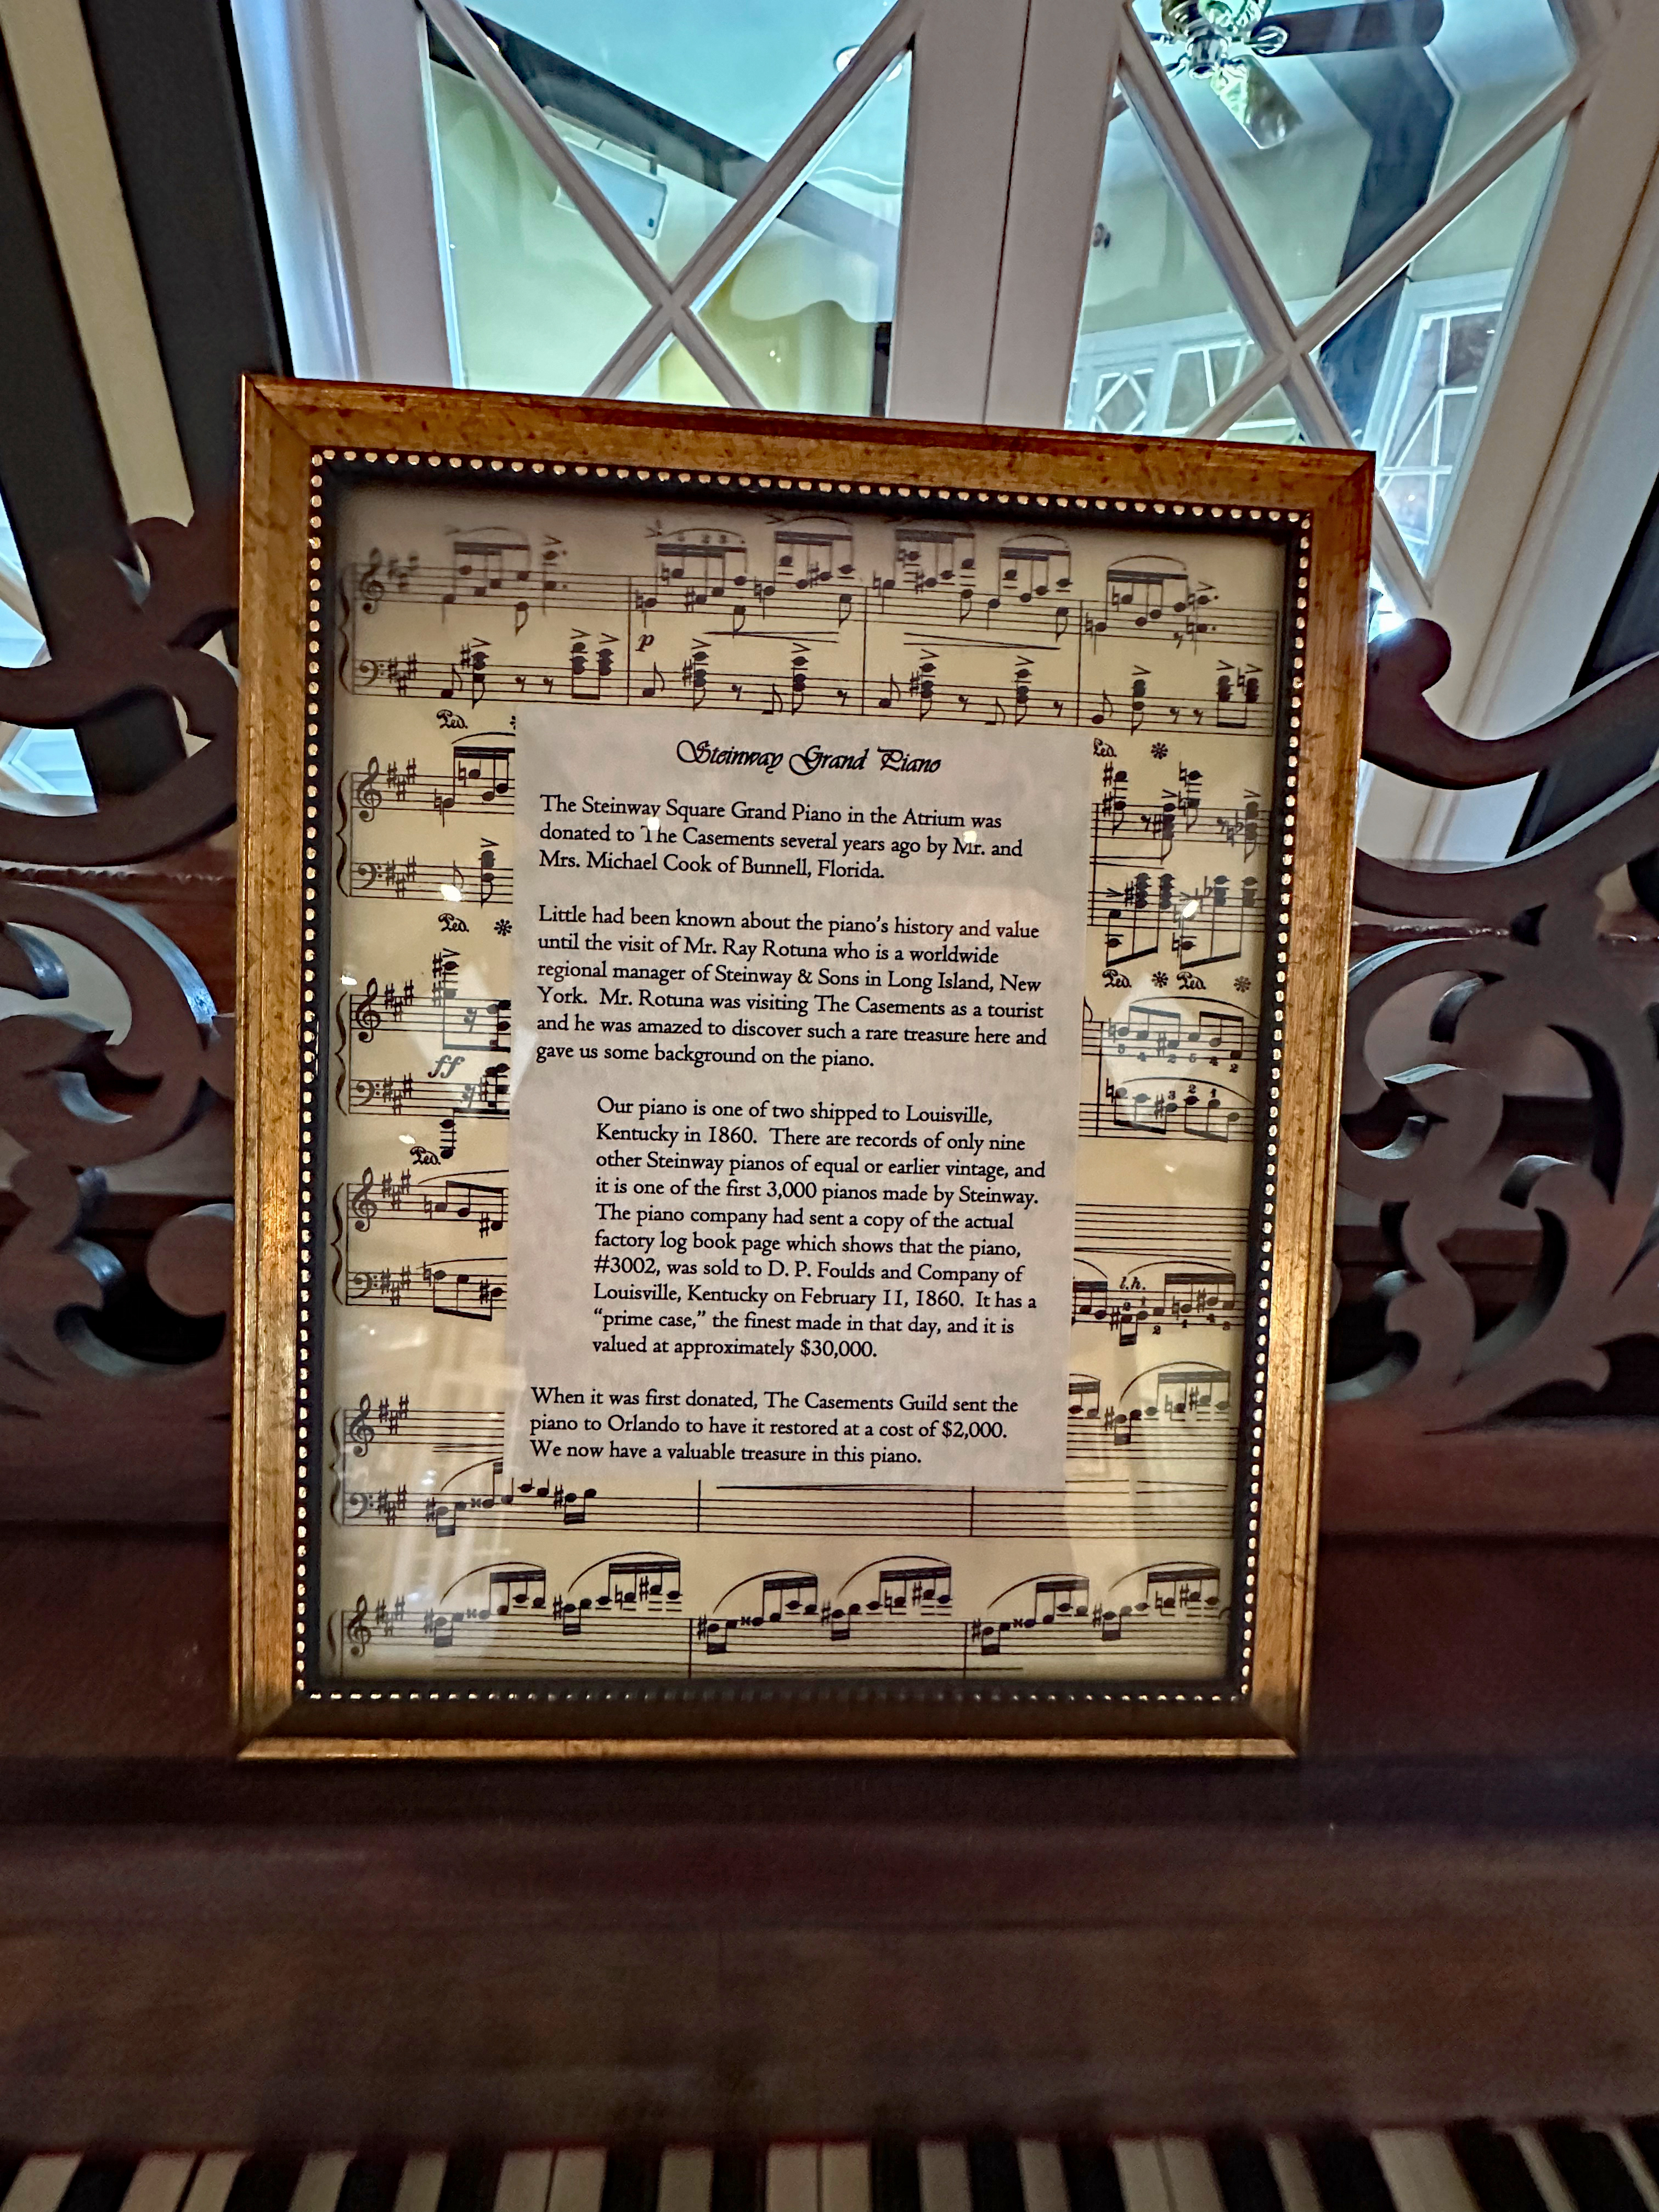 p
Ped.
Steinway Grand Piano
Ped.
The Steinway Square Grand Piano in the Atrium was
donated to The Casements several years ago by Mr. and
Mrs. Michael Cook of Bunnell, Florida.
Little had been known about the piano's history and value
Ped.
until the visit of Mr. Ray Rotuna who is a worldwide
regional manager of Steinway & Sons in Long Island, New
Ped.
Ped.
York. Mr. Rotuna was visiting The Casements as a tourist
and he was amazed to discover such a rare treasure here and
gave us some background on the piano.
ff
Our piano is one of two shipped to Louisville,
Kentucky in 1860. There are records of only nine
Ped.
other Steinway pianos of equal or earlier vintage, and
it is one of the first 3,000 pianos made by Steinway.
The piano company had sent a copy of the actual
factory log book page which shows that the piano,
#3002, was sold to D. P. Foulds and Company of
l.h.
Louisville, Kentucky on February 11, 1860. It has a
“prime case,” the finest made in that day, and it is
valued at approximately $30,000.
When it was first donated, The Casements Guild sent the
piano to Orlando to have it restored at a cost of $2,000.
We now have a valuable treasure in this piano.